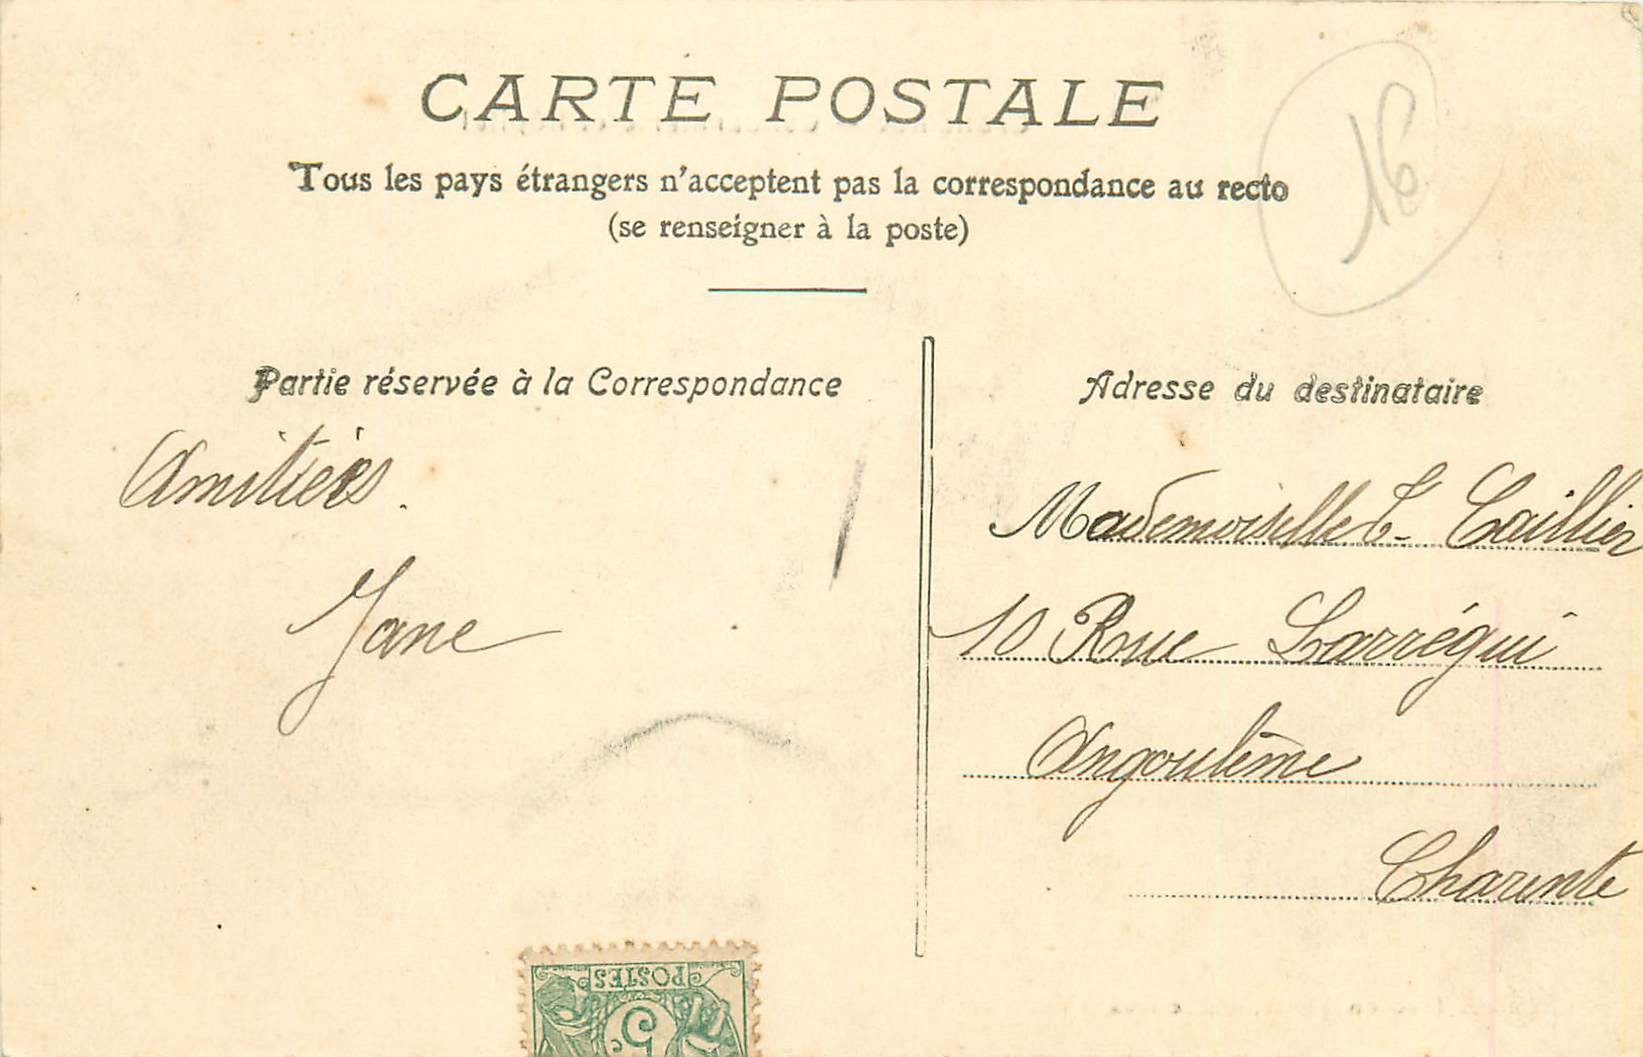 CARTE POSTALE
Tous les pays étrangers n'acceptent pas la correspondance au recto
(se renseigner à la poste)
16
Partie réservée à la Correspondance
Amitiés.
Jane
Adresse du destinataire
Mademoiselle T. Caillier
10 Rue Larrégui
Angoulême
Charente
POSTES
5c